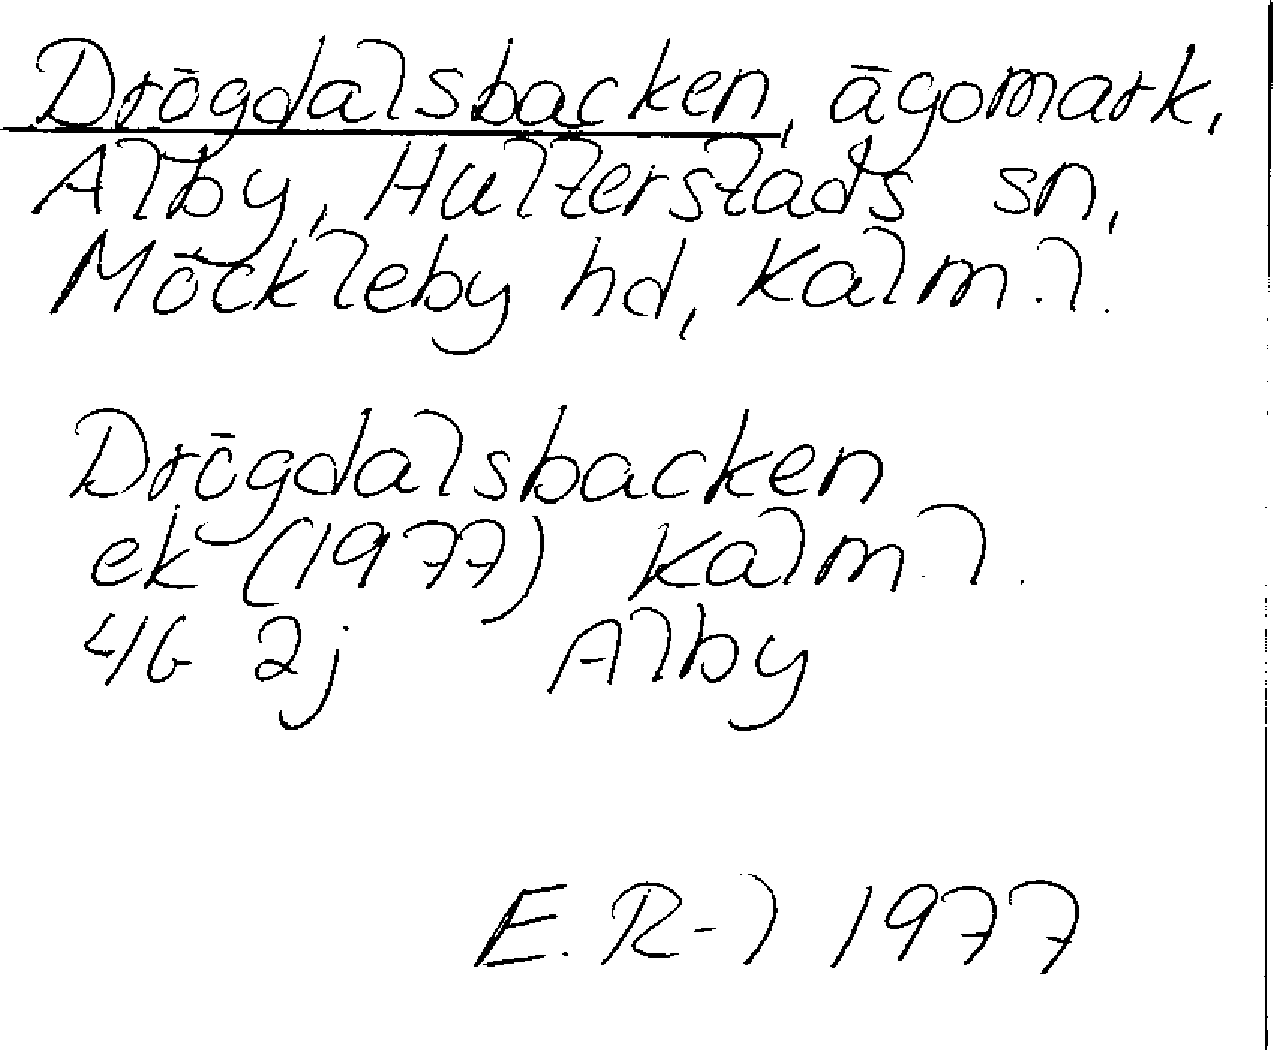 Drögdalsbacken, ägomark,
Alby, Hulterstads sn,
Möckleby hd, Kalm.l.
Drögdalsbacken
ek (1977) Kalm.l.
4G 2j Alby
E.R-l 1977